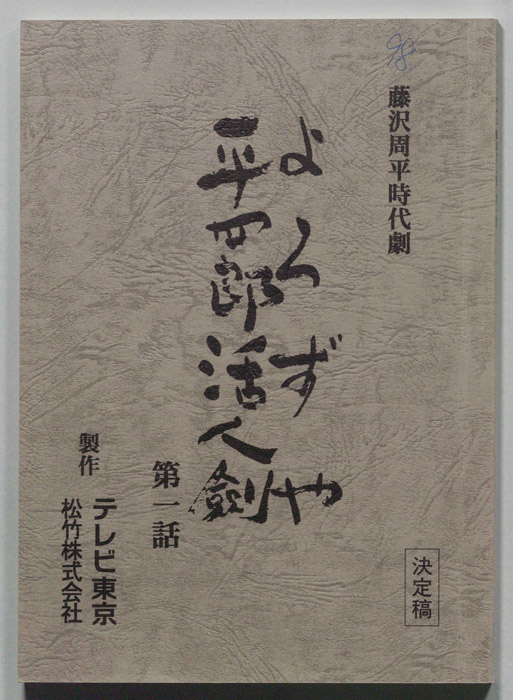 藤沢周平時代劇
よろずや
平四郎活人剣
第一話
製作
テレビ東京
松竹株式会社
決定稿